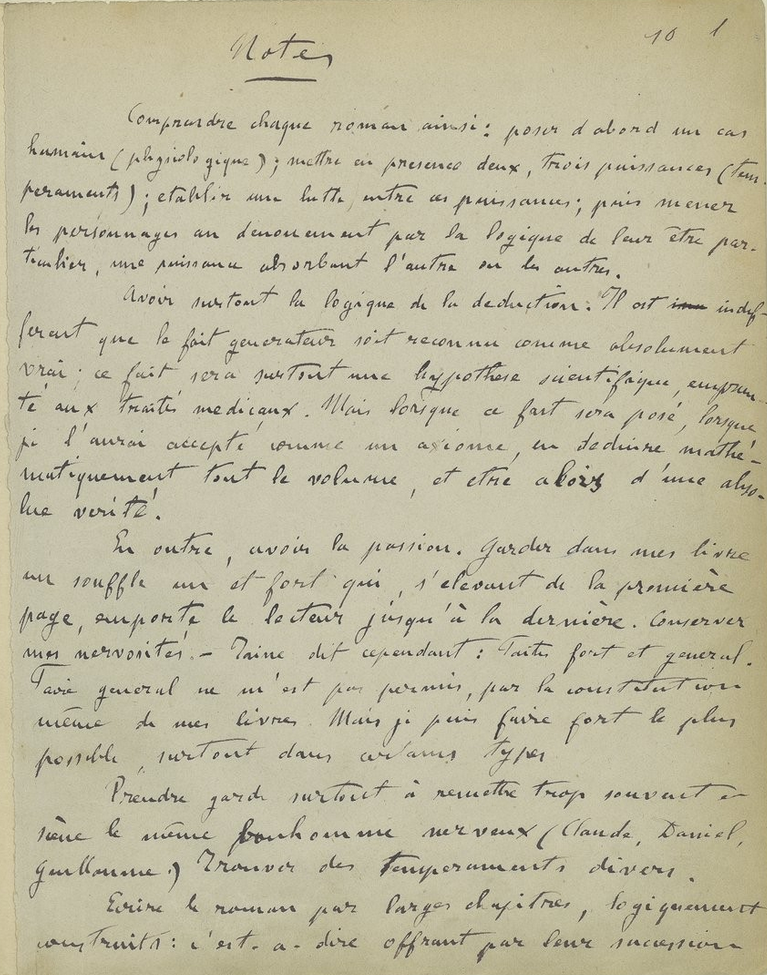 10 1
Notes
Comprendre chaque roman ainsi : poser d'abord un cas
humain (physiologique) ; mettre en presence deux, trois puissances (tem-
peraments) ; etablir une lutte entre ces puissances ; puis mener
les personnages au denouement par la logique de leur être par-
ticulier, une puissance absorbant l'autre ou les autres.
Avoir surtout la logique de la deduction. Il est indif-
ferent que le fait generateur soit reconnu comme absolument
vrai ; ce fait sera surtout une hypothese scientifique, emprun-
té aux traités medicaux. Mais lorsque ce fait sera posé, lorsque
je l'aurai accepté comme un axiome, en deduire mathé-
matiquement tout le volume, et etre alors d'une abso-
lue verité.
En outre, avoir la passion. Garder dans mes livre
un souffle un et fort qui, s'elevant de la première
page, emporte le lecteur jusqu'à la dernière. Conserver
mes nervosités. – Taine dit cependant : Faites fort et general.
Faire general ne m'est pas permis, par la constitution
même de mes livres. Mais je puis faire fort le plus
possible, surtout dans certains types
Prendre garde surtout à remettre trop souvent en
scène le même bonhomme nerveux (Claude, Daniel,
Guillaume.) Trouver des temperaments divers.
Ecrire le roman par larges chapitres, logiquement
construits : c'est-a-dire offrant par leur succession